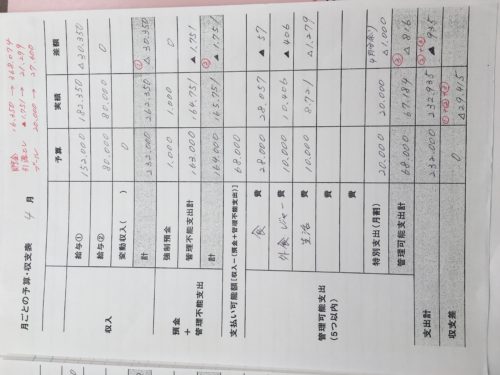 月ごとの予算・収支表 4 月
引落とし ▲1.751 → 21.299
プール 20.000 → 27.600
予算 実績 差額
収入
給与① 152.000 182.350 △30.350
給与② 80.000 80.000 0
変動収入( ) 0
計 232.000 262.350 ① △30.350
預金
+
管理不能支出
強制預金 1.000 1.000 0
管理不能支出計 163.000 164.751 ▲1.751
計 164.000 165.751 ② ▲1.751
支払い可能額[収入-(預金+管理不能支出)] 68.000
管理可能支出
(5つ以内)
食 費 28.000 28.057 ▲57
外食レジャー 費 10.000 10.406 ▲406
生活 費 10.000 8.721 △1.279
費
費
特別支出(月割) 20.000 20.000 △1.000
管理可能支出計 68.000 67.184 ③ △816
支出計 232.000 232.935 ②+③ ▲935
収支差 0 △29.415